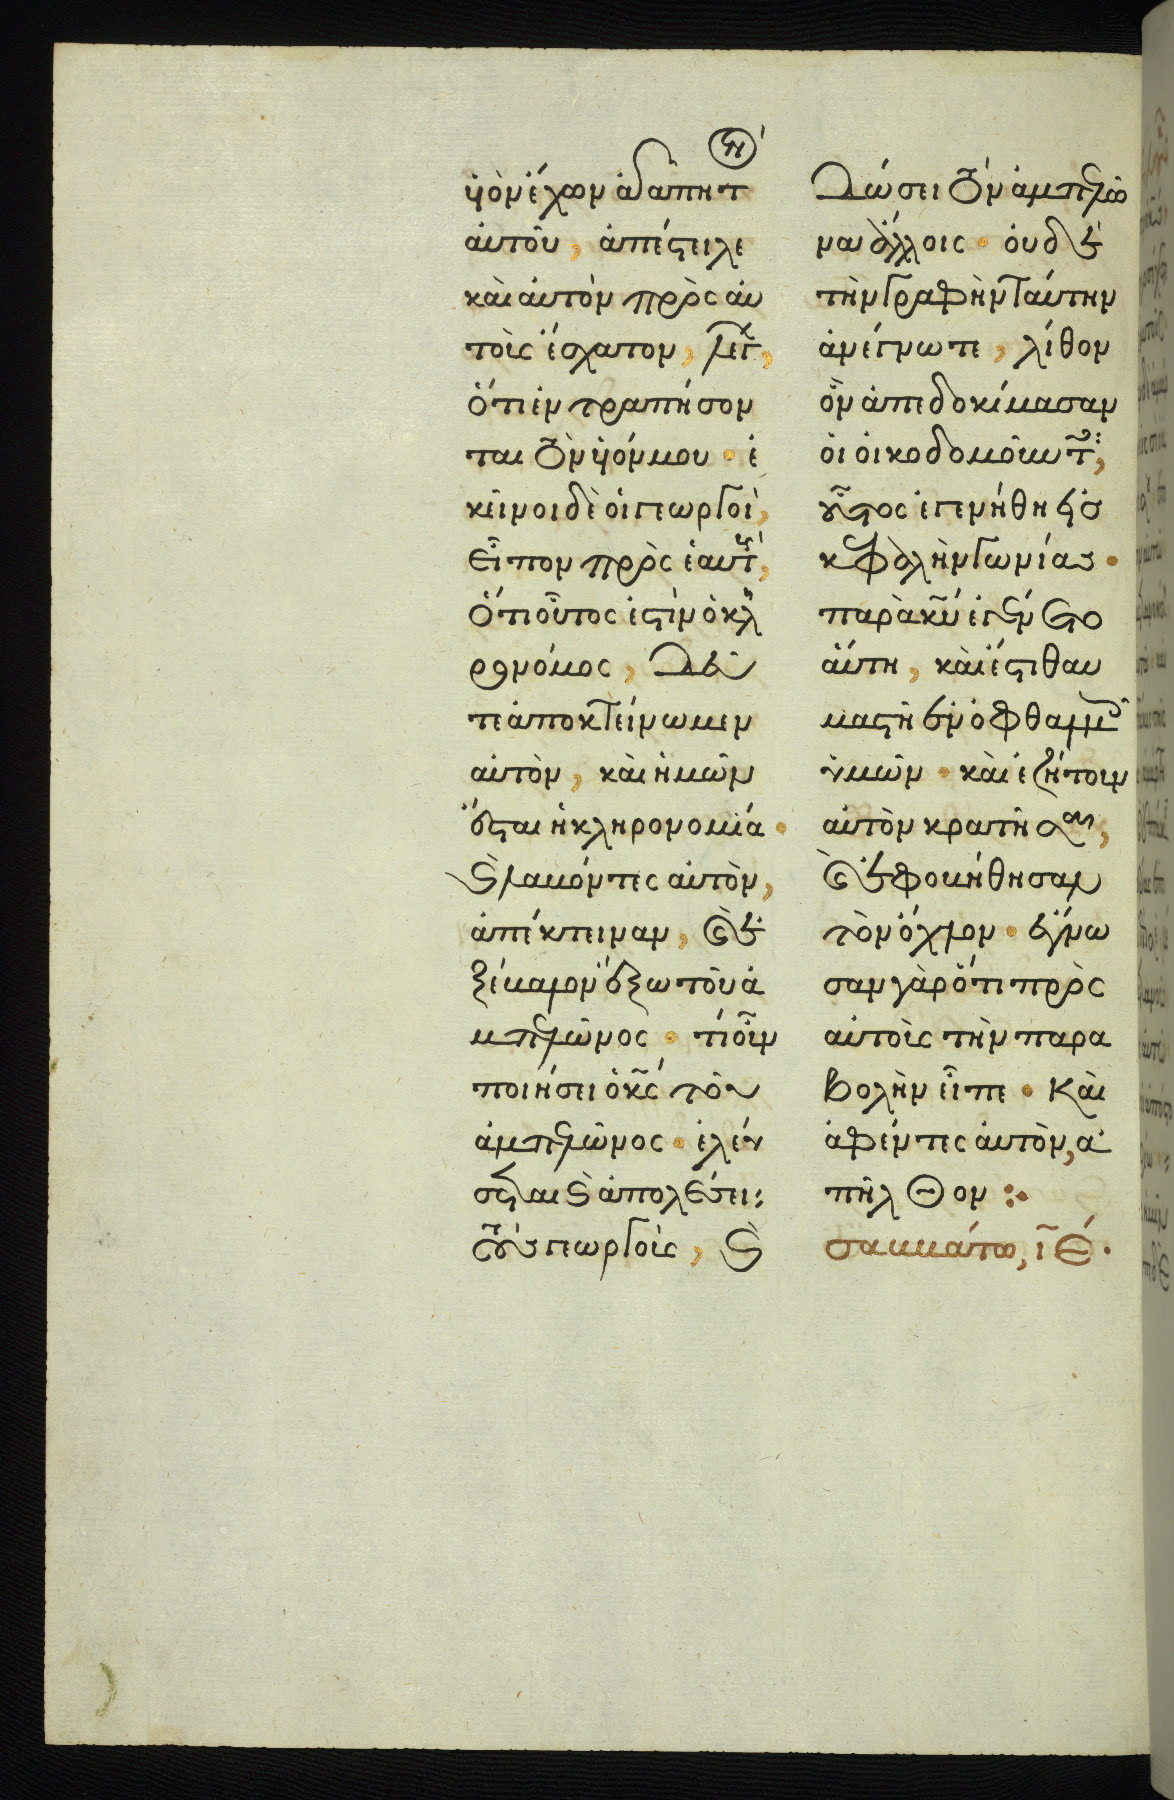 υἱὸν ἔχων ἀγαπητὸν
αὐτοῦ, ἀπέστειλε
καὶ αὐτὸν πρὸς αὐ
τοὺς ἔσχατον, λέγων,
ὅτι ἐντραπήσον
ται τὸν υἱόν μου · ἐ
κεῖνοι δὲ οἱ γεωργοὶ,
εἶπον πρὸς ἑαυτούς,
ὅτι οὗτός ἐστιν ὁ κλη
ρονόμος, δεῦ
τε ἀποκτείνωμεν
αὐτὸν, καὶ ἡμῶν
ἔσται ἡ κληρονομία ·
καὶ λαβόντες αὐτὸν,
ἀπέκτειναν, καὶ ἐ
ξέβαλον ἔξω τοῦ ἀ
μπελῶνος · τί οὖν
ποιήσει ὁ κς τοῦ
ἀμπελῶνος · ἐλεύ
σεται καὶ ἀπολέσει
τοὺς γεωργοὺς, καὶ
δώσει τὸν ἀμπελῶ
να ἄλλοις · οὐδὲ
τὴν γραφὴν ταύτην
ἀνέγνωτε, λίθον
ὃν ἀπεδοκίμασαν
οἱ οἰκοδομοῦντες,
οὗτος ἐγενήθη εἰς
κεφαλὴν γωνίας ·
παρὰ κυ ἐγένετο
αὕτη, καὶ ἔστι θαυ
μαστὴ ἐν ὀφθαλμοῖς
ὑμῶν · καὶ ἐζήτουν
αὐτὸν κρατῆσαι,
καὶ ἐφοβήθησαν
τὸν ὄχλον · ἔγνω
σαν γὰρ ὅτι πρὸς
αὐτοὺς τὴν παρα
βολὴν εἶπε · Καὶ
ἀφέντες αὐτὸν, ἀ
πῆλθον :·
σαββάτω, ιε ·